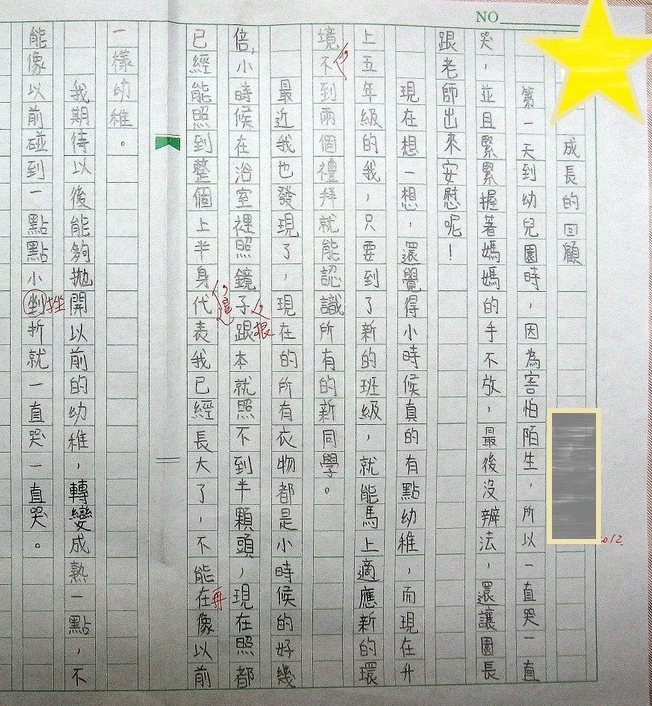 NO
成長的回顧
第一天到幼兒園時，因為害怕陌生，所以一直哭一直
哭，並且緊緊握著媽媽的手不放，最後沒辦法，還讓園長
跟老師出來安慰呢！
現在想一想，還覺得小時候真的有點幼稚，而現在升
上五年級的我，只要到了新的班級，就能馬上適應新的環
境不到兩個禮拜就能認識所有的新同學。
最近我也發現了，現在的所有衣物都是小時候的好幾
倍，小時候在浴室裡照鏡子跟本就照不到半顆頭，現在照都
根
已經能照到整個上半身代表我已經長大了，不能在像以前
這
再
一樣幼稚。
我期待以後能夠拋開以前的幼稚，轉變成熟一點，不
能像以前碰到一點點小剉折就一直哭一直哭。
挫